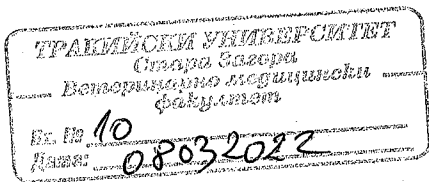 ТРАКИЙСКИ УНИВЕРСИТЕТ
Стара Загора
Ветеринарно медицински
факултет
Вх. № 10
Дата: 08032022